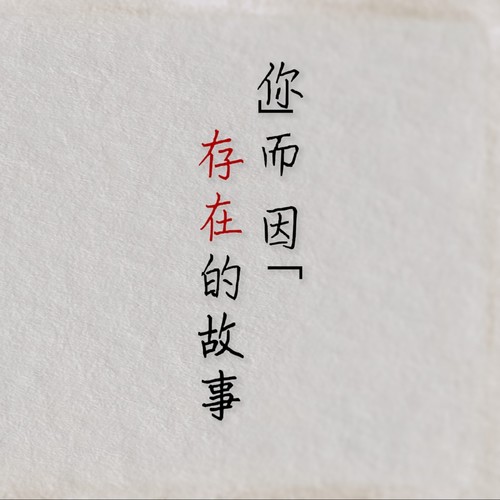 你」而因「
存在的故事